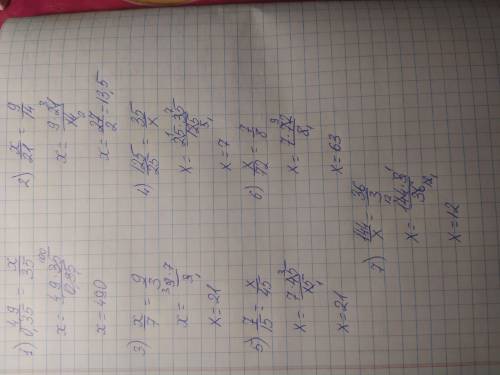 1) 4,9/0,35 = x/35
x = 4,9·35/0,35
x = 490
2) x/21 = 9/14
x = 9·21/14
x = 27/2 = 13,5
3) x/7 = 9/3
x = 9·7/3
x = 21
4) 125/25 = 35/x
x = 25·35/125
x = 7
5) 7/15 = x/45
x = 7·45/15
x = 21
6) x/72 = 7/8
x = 7·72/8
x = 63
7) 144/x = 36/3
x = 144·3/36
x = 12